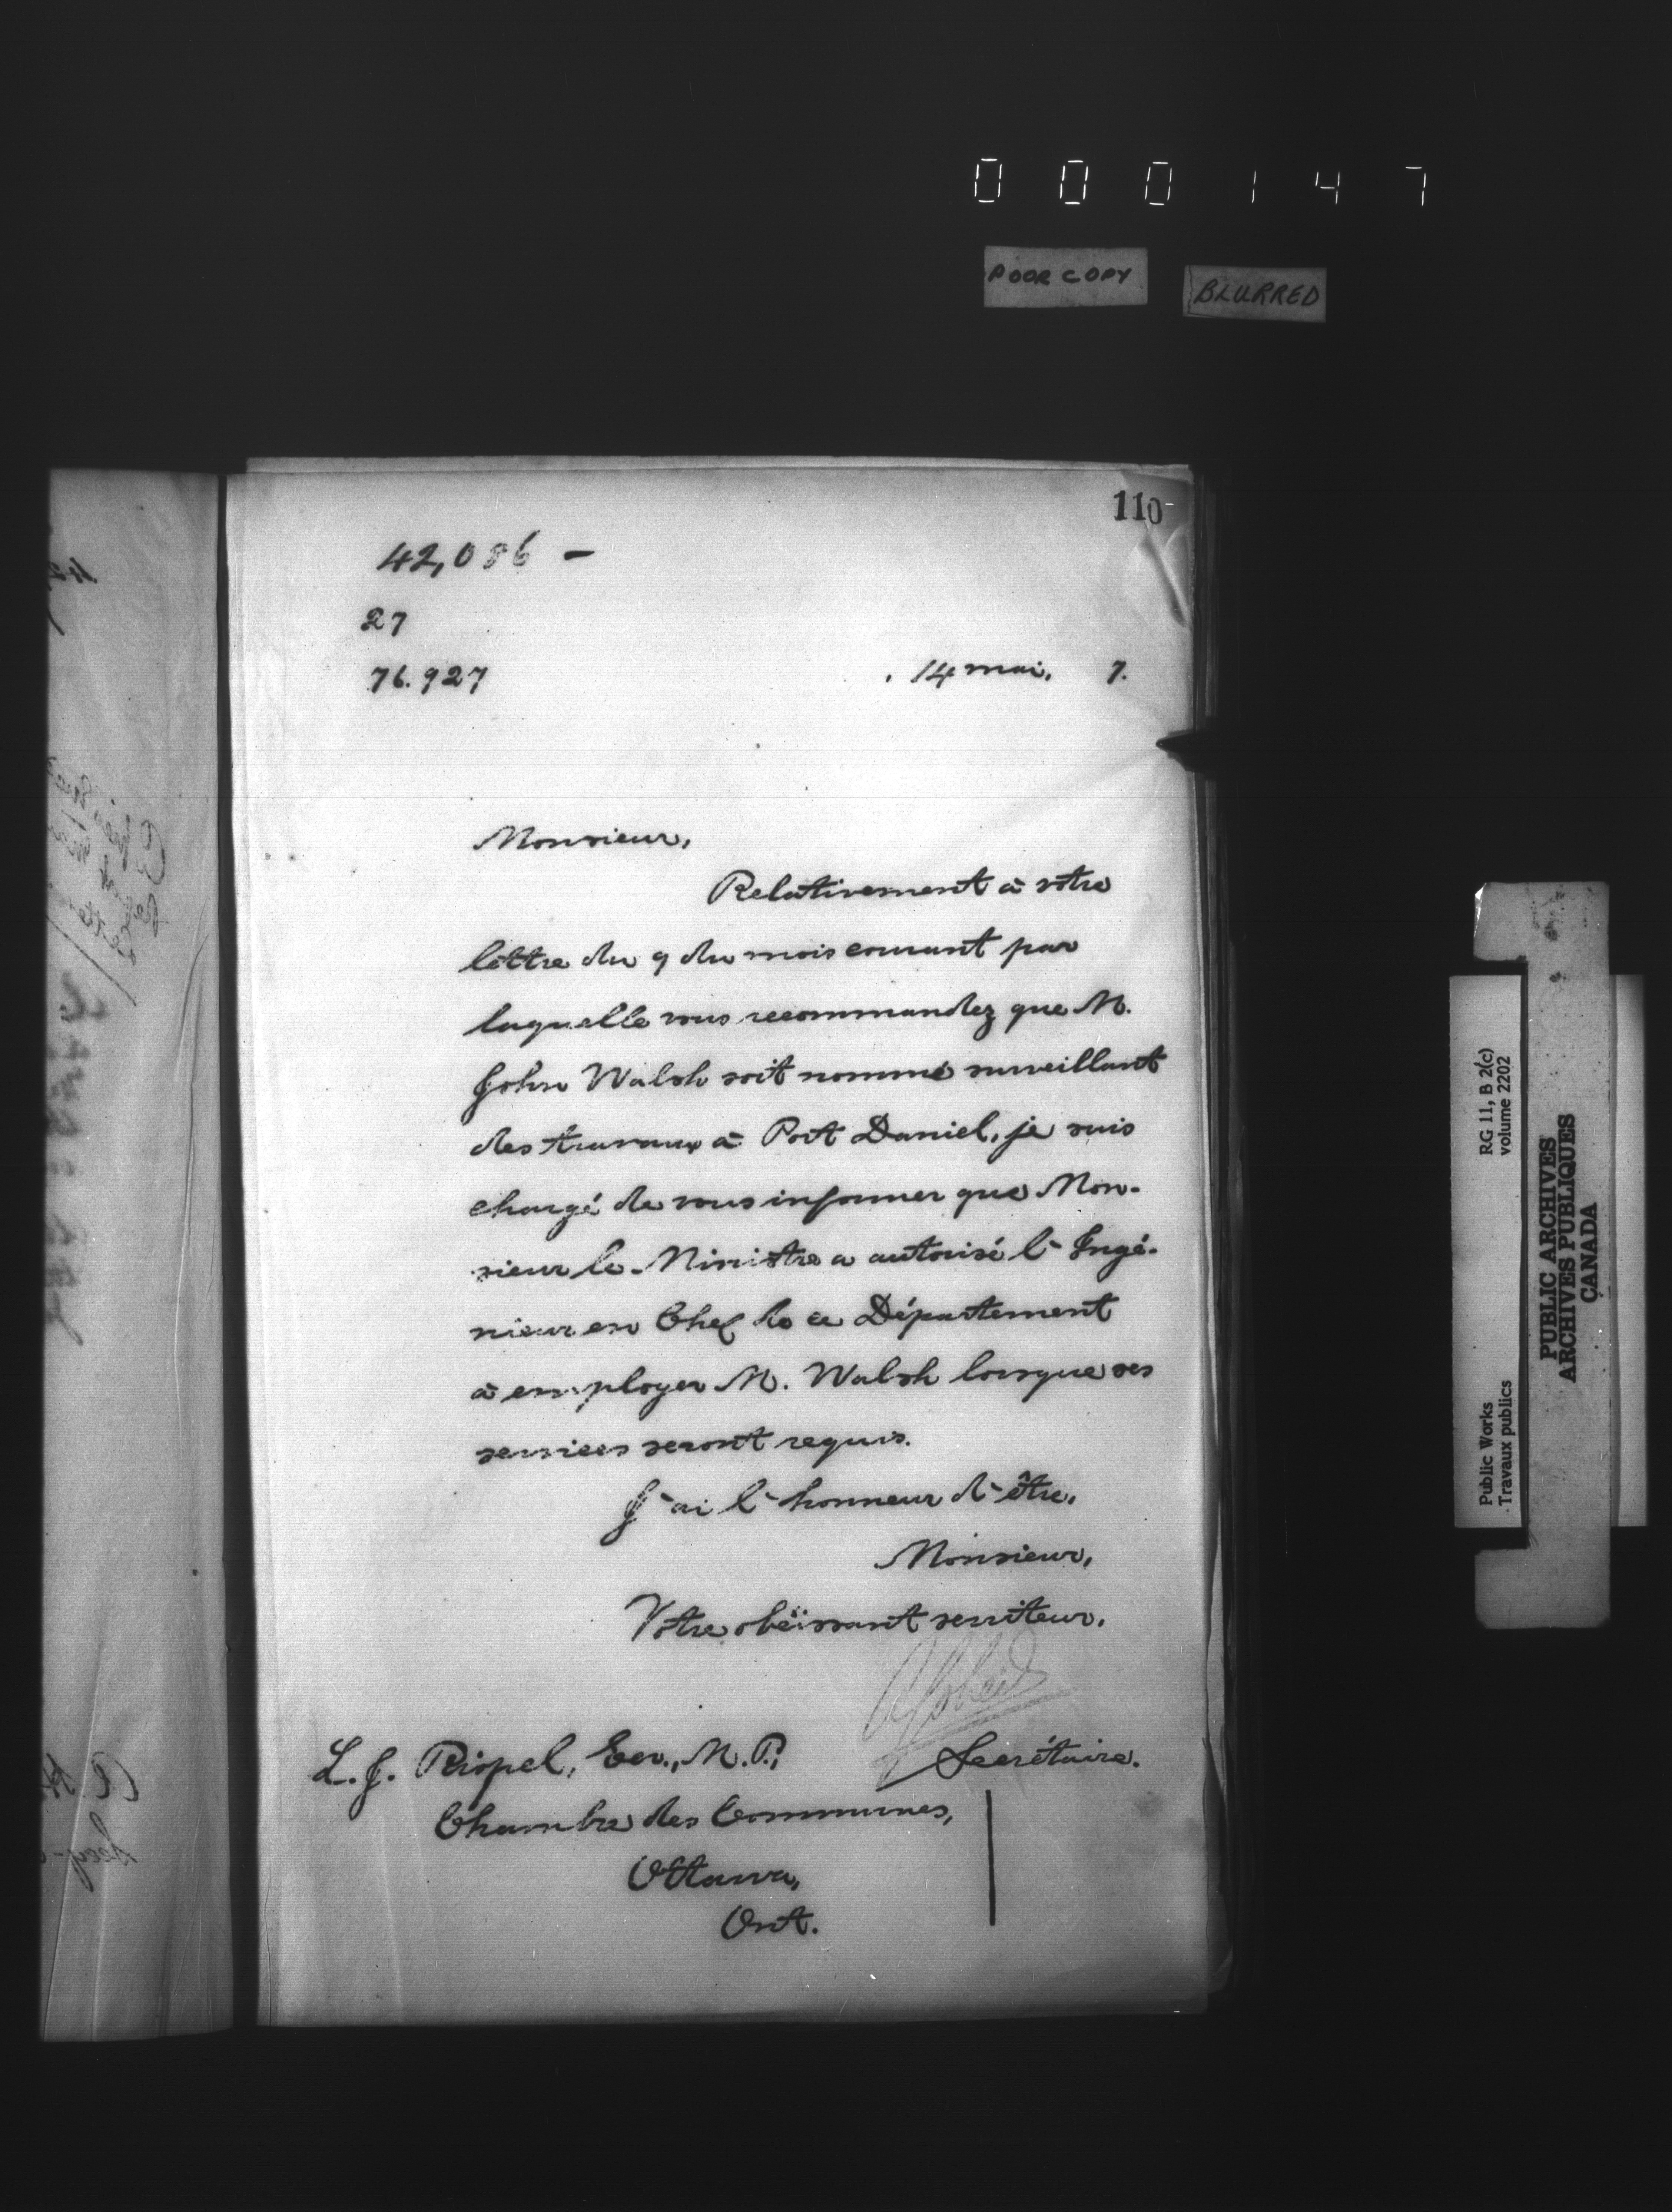 000147
POOR COPY
BLURRED
110
42,086 -
27
76.927
14 mai, 7.
Monsieur,
Relativement à votre
lettre du 9 du mois courant par
laquelle vous recommandez que M.
John Walsh soit nommé surveillant
des travaux à Port Daniel, je suis
chargé de vous informer que Mon-
sieur le Ministre a autorisé l'Ingé-
nieur en Chef de ce Département
à employer M. Walsh lorsque ses
services seront requis.
J'ai l'honneur d'être,
Monsieur,
Votre obéissant serviteur,
Secrétaire.
L. J. Riopel, Ecr., M. P.,
Chambre des Communes,
Ottawa,
Ont.
Public Works
Travaux publics
RG 11, B 2(c)
volume 2202
PUBLIC ARCHIVES
ARCHIVES PUBLIQUES
CANADA